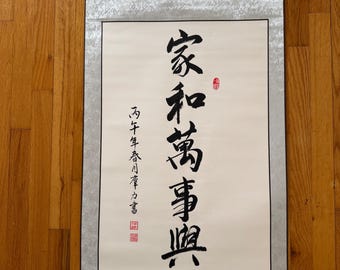 家和萬事興
丙午年春月羣力書